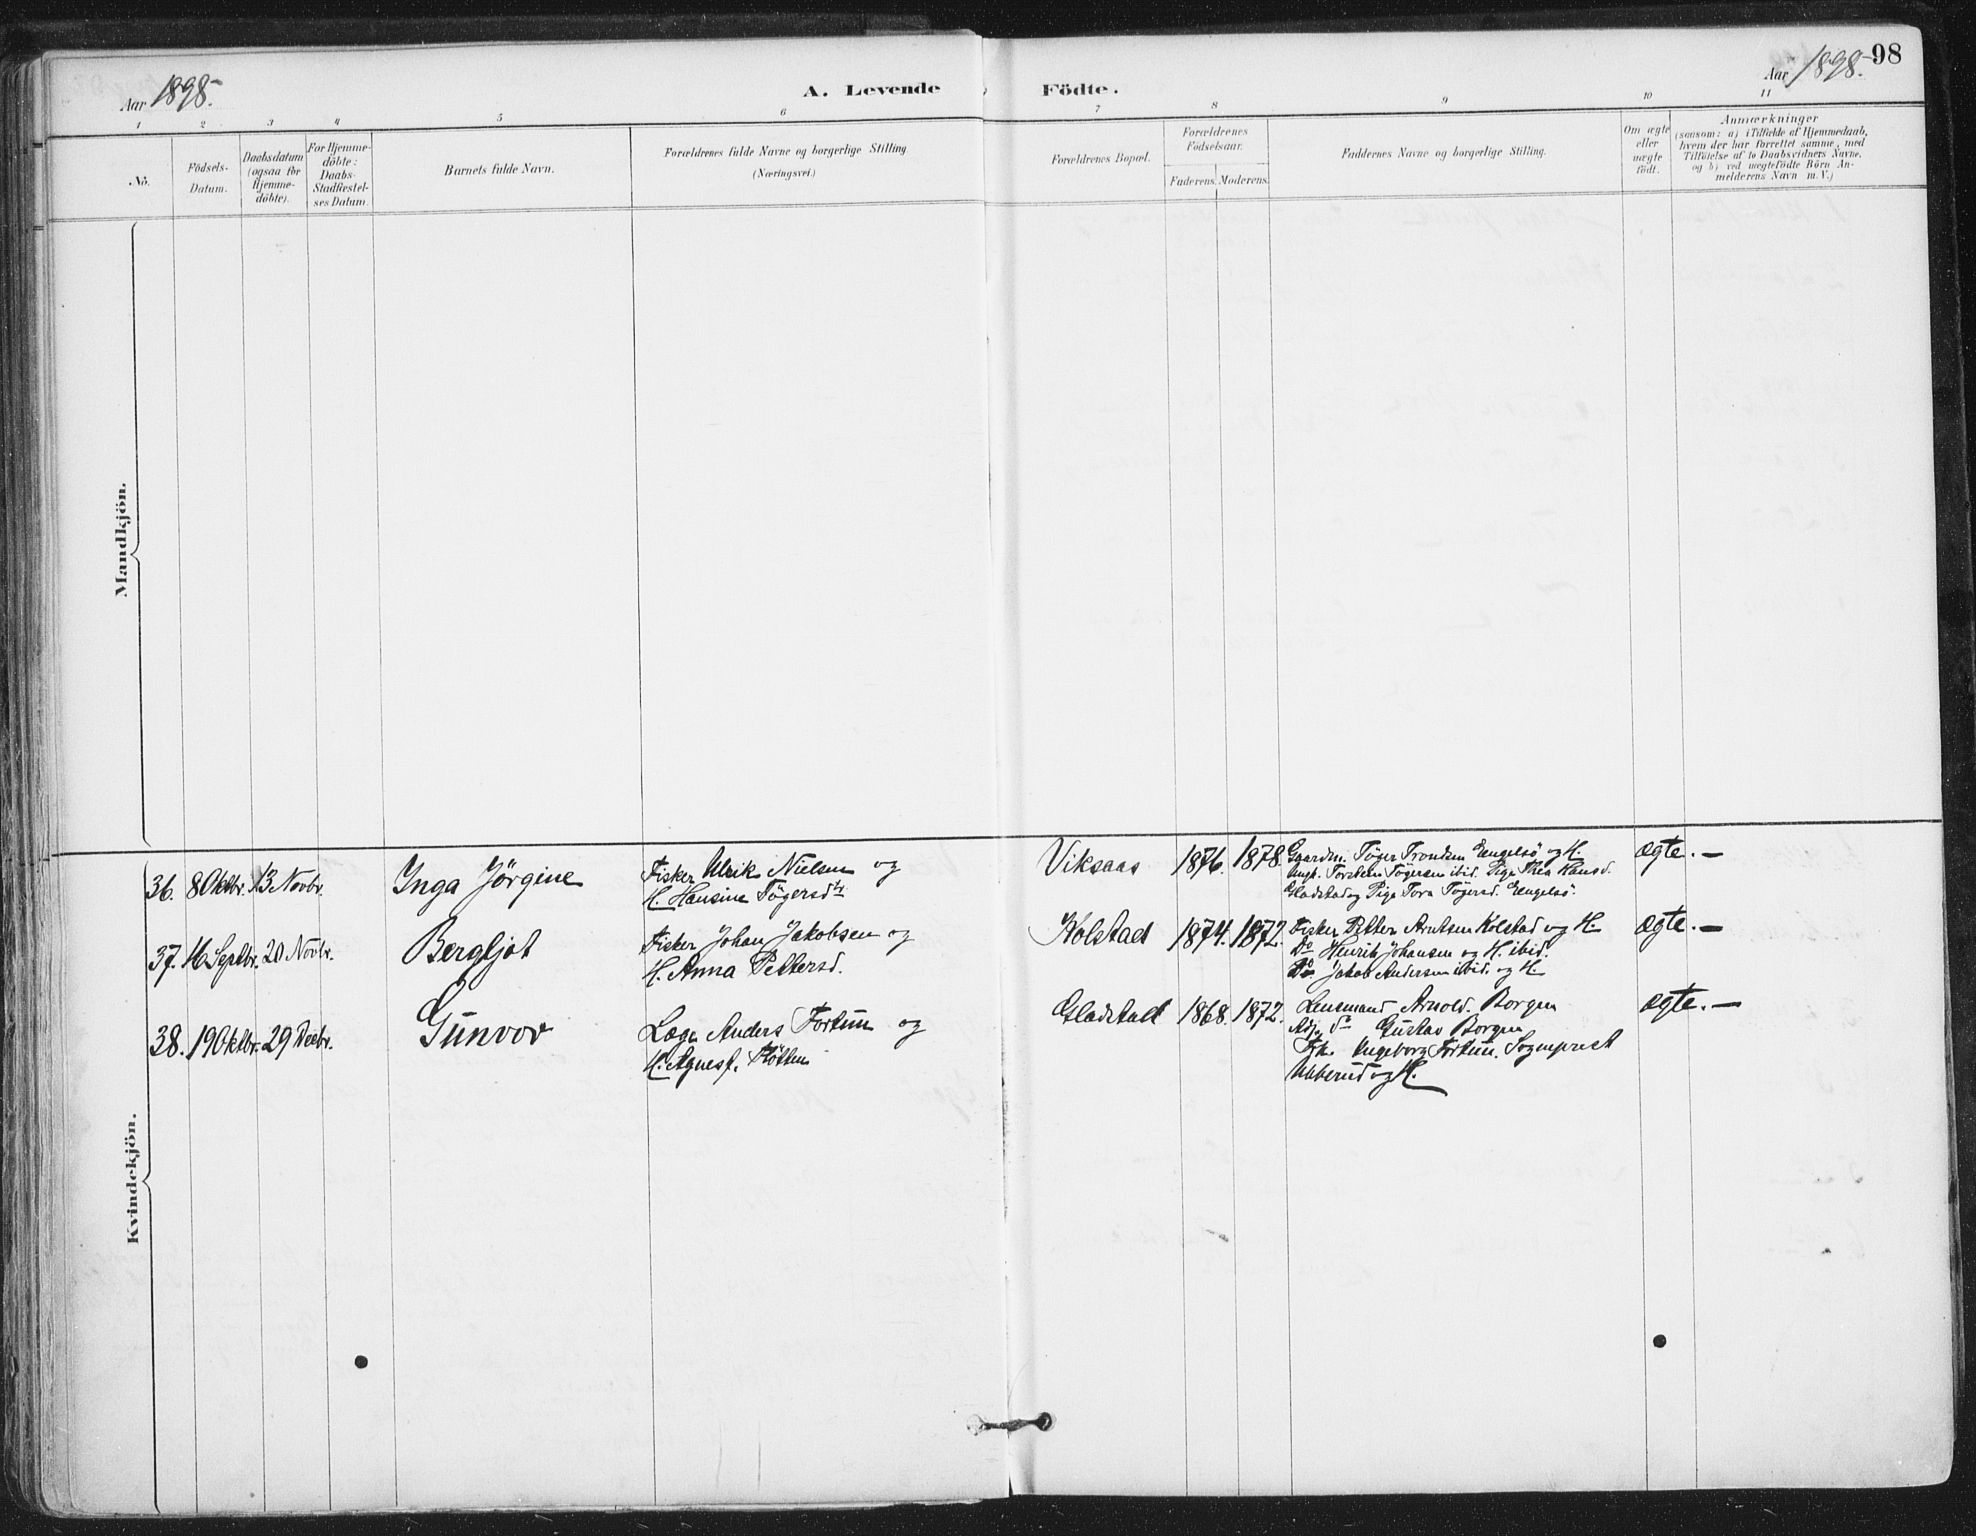 98
Aar 1898.
A. Levende Födte.
Aar 1898.
1 2 3 4 5 6 7 8 9 10 11
No.
Födsels-
Datum.
Daabsdatum
(ogsaa for
Hjemme-
döbte).
For Hjemme-
döbte:
Daabs-
Stadfestel-
ses Datum.
Barnets fulde Navn.
Forældrenes fulde Navne og borgerlige Stilling
(Næringsvei.)
Forældrenes Bopæl.
Forældrenes
Födselsaar.
Faderens. Moderens.
Faddernes Navne og borgerlige Stilling.
Om ægte
eller
uægte
födt.
Anmærkninger
(saasom: a) i Tilfælde af Hjemmedaab,
hvem der har forrettet samme, med
Tilföielse af to Daabsvidners Navne,
og b) ved uægtefödte Börn An-
melderens Navn m. V.)
Mandkjön.
Kvindekjön.
36. 8 Oktbr. 13 Novbr. Inga Jörgine
Fisker Ulrik Nielsen og
H. Hansine Tögersdtr.
Viksaas 1876. 1878.
Gaardm. Töger Trondsen Engelsö og H.
Ungk. Torstein Tögersen ibid. Pige Thea Hansd.
Gladstad og Pige Tora Tögersd. Engelsö.
Ægte. —
37. 16 Septbr. 20 Novbr. Bergljot
Fisker Johan Jakobsen og
H. Anna Pettersd.
Holstad 1874. 1872.
Fisker Petter Arntsen Kolstad og H.
Do Henrik Johansen og H. ibid.
Do Jakob Andersen ibid. og H.
Ægte. —
38. 19 Oktbr. 29 Decbr. Gunvor
Læge Anders Fortun og
H. Agnes f. Fløtten
Gladstad 1868. 1872.
Lensmand Arnold Borgen
Adj. do Gustav Borgen
Frk. Ingeborg Fortun. Sogneprest
Ubberud og H.
Ægte. —